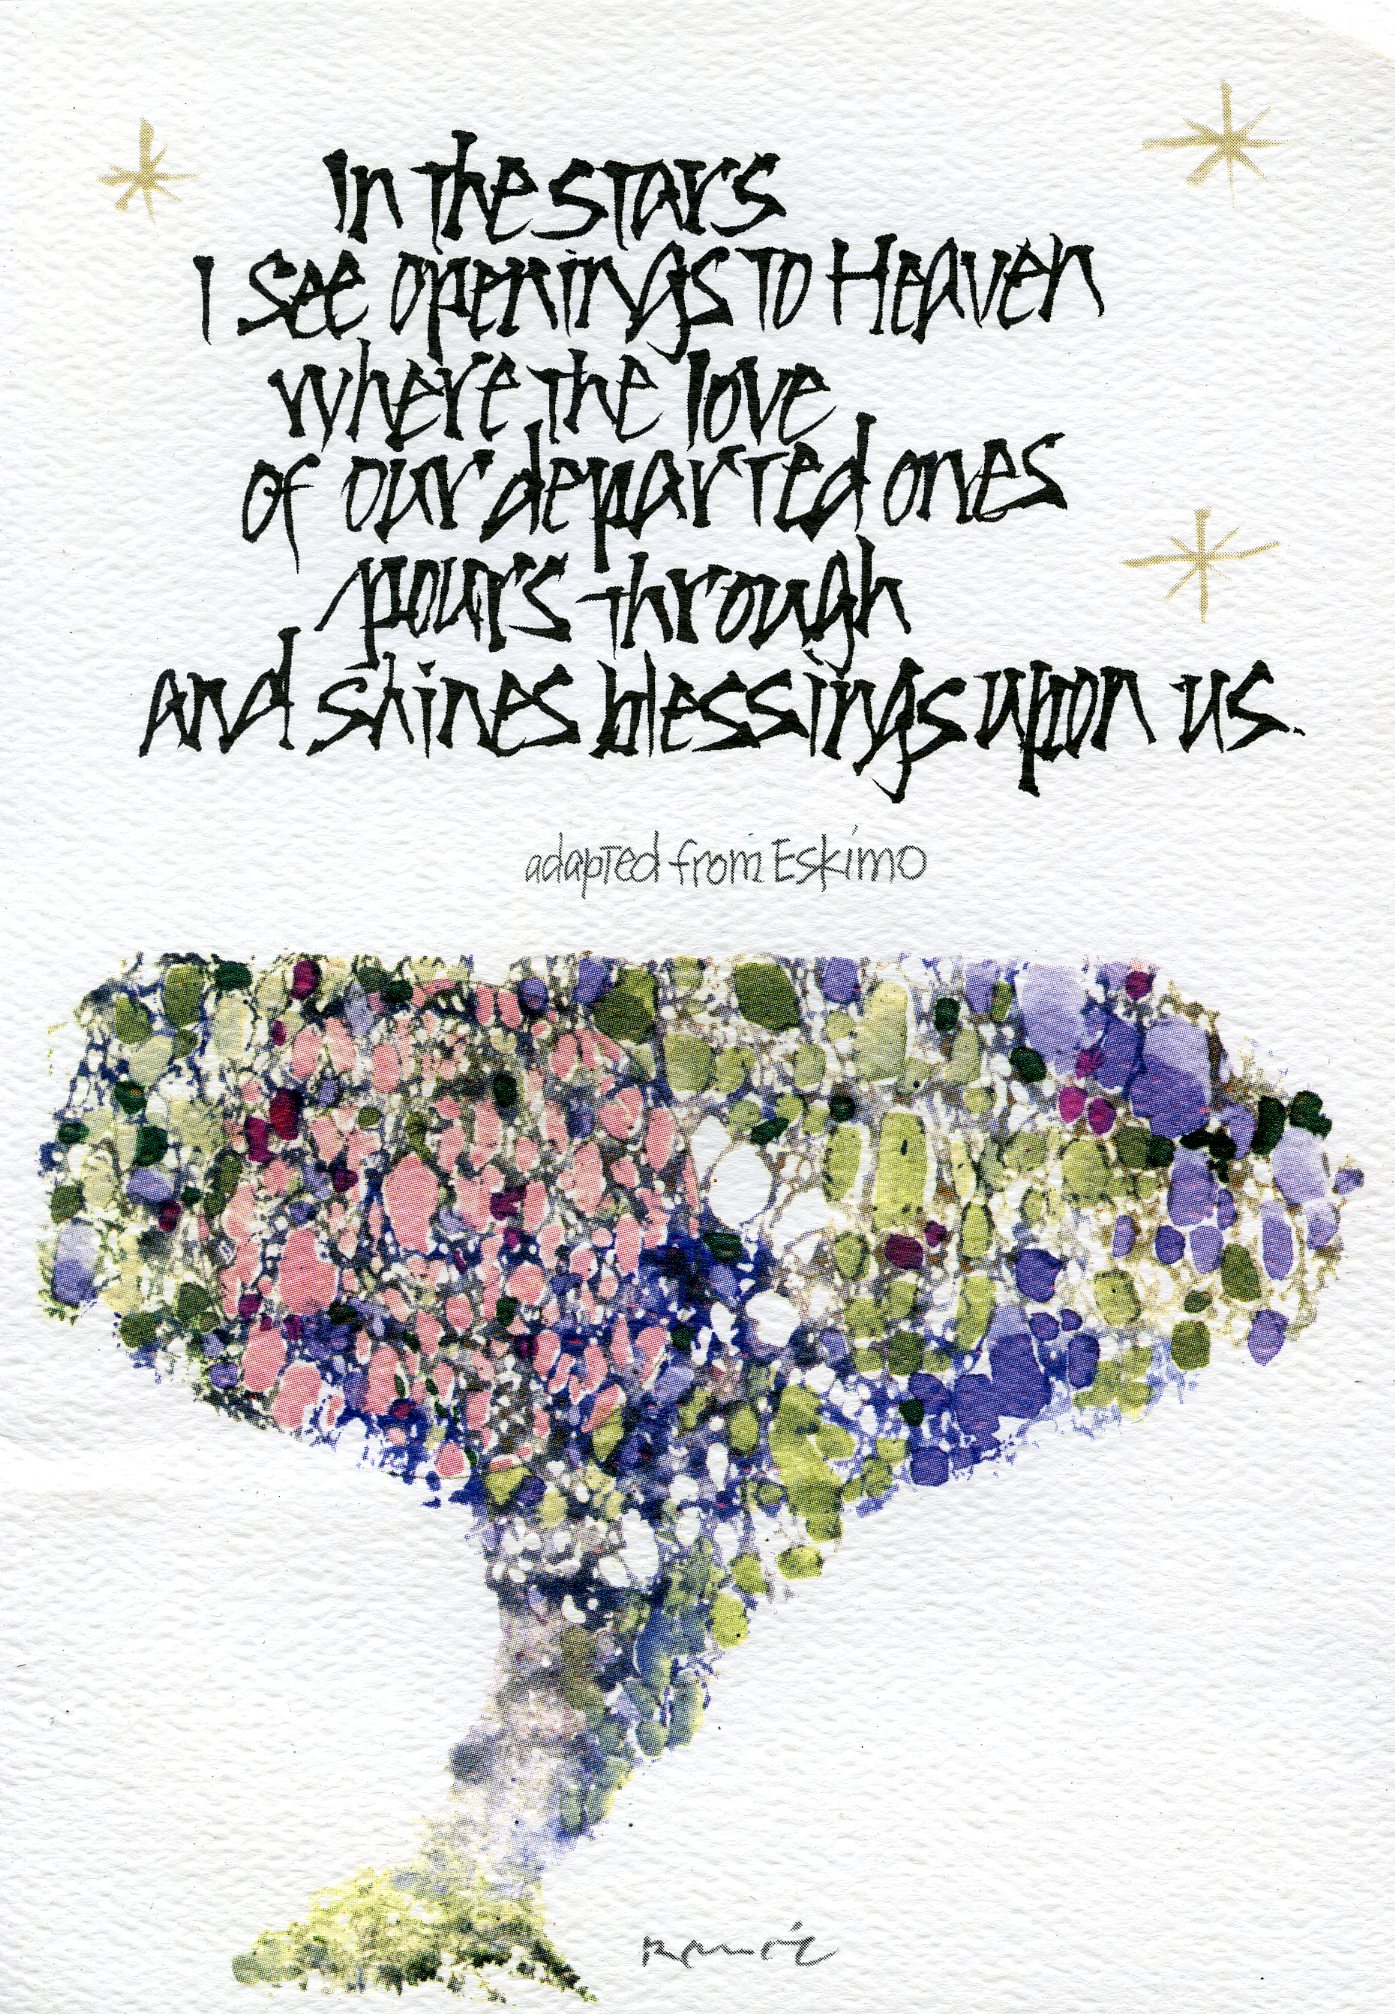 In the stars
I see openings to Heaven
where the love
of our departed ones
pours through
and shines blessings upon us.
adapted from Eskimo